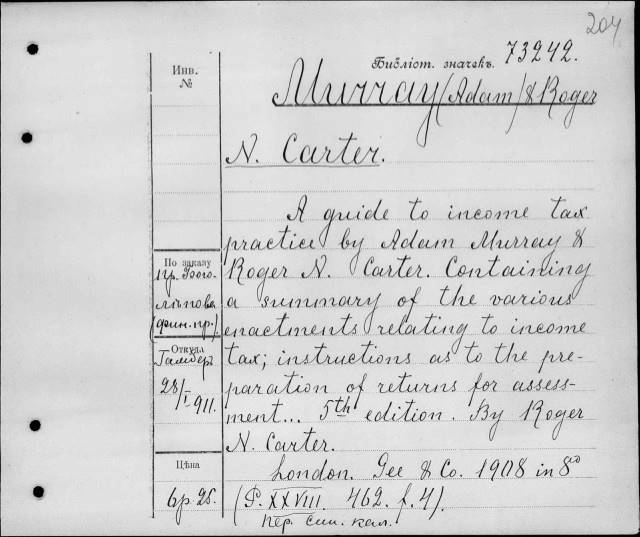 204
Библіот. значекъ. 73242.
Инв.
№
Murray (Adam) & Roger
N. Carter.
A guide to income tax
practice by Adam Murray &
Roger N. Carter. Containing
a summary of the various
enactments relating to income
tax; instructions as to the pre-
paration of returns for assess-
ment... 5th edition. By Roger
N. Carter.
London. Gee & Co. 1908 in 8º
(P. XXVIII. 462. f. 4).
По заказу
пр. Бого-
лѣпова
(фин. пр.)
Откуда
28/I 911.
Цѣна
6р. 25.
пер. кал.